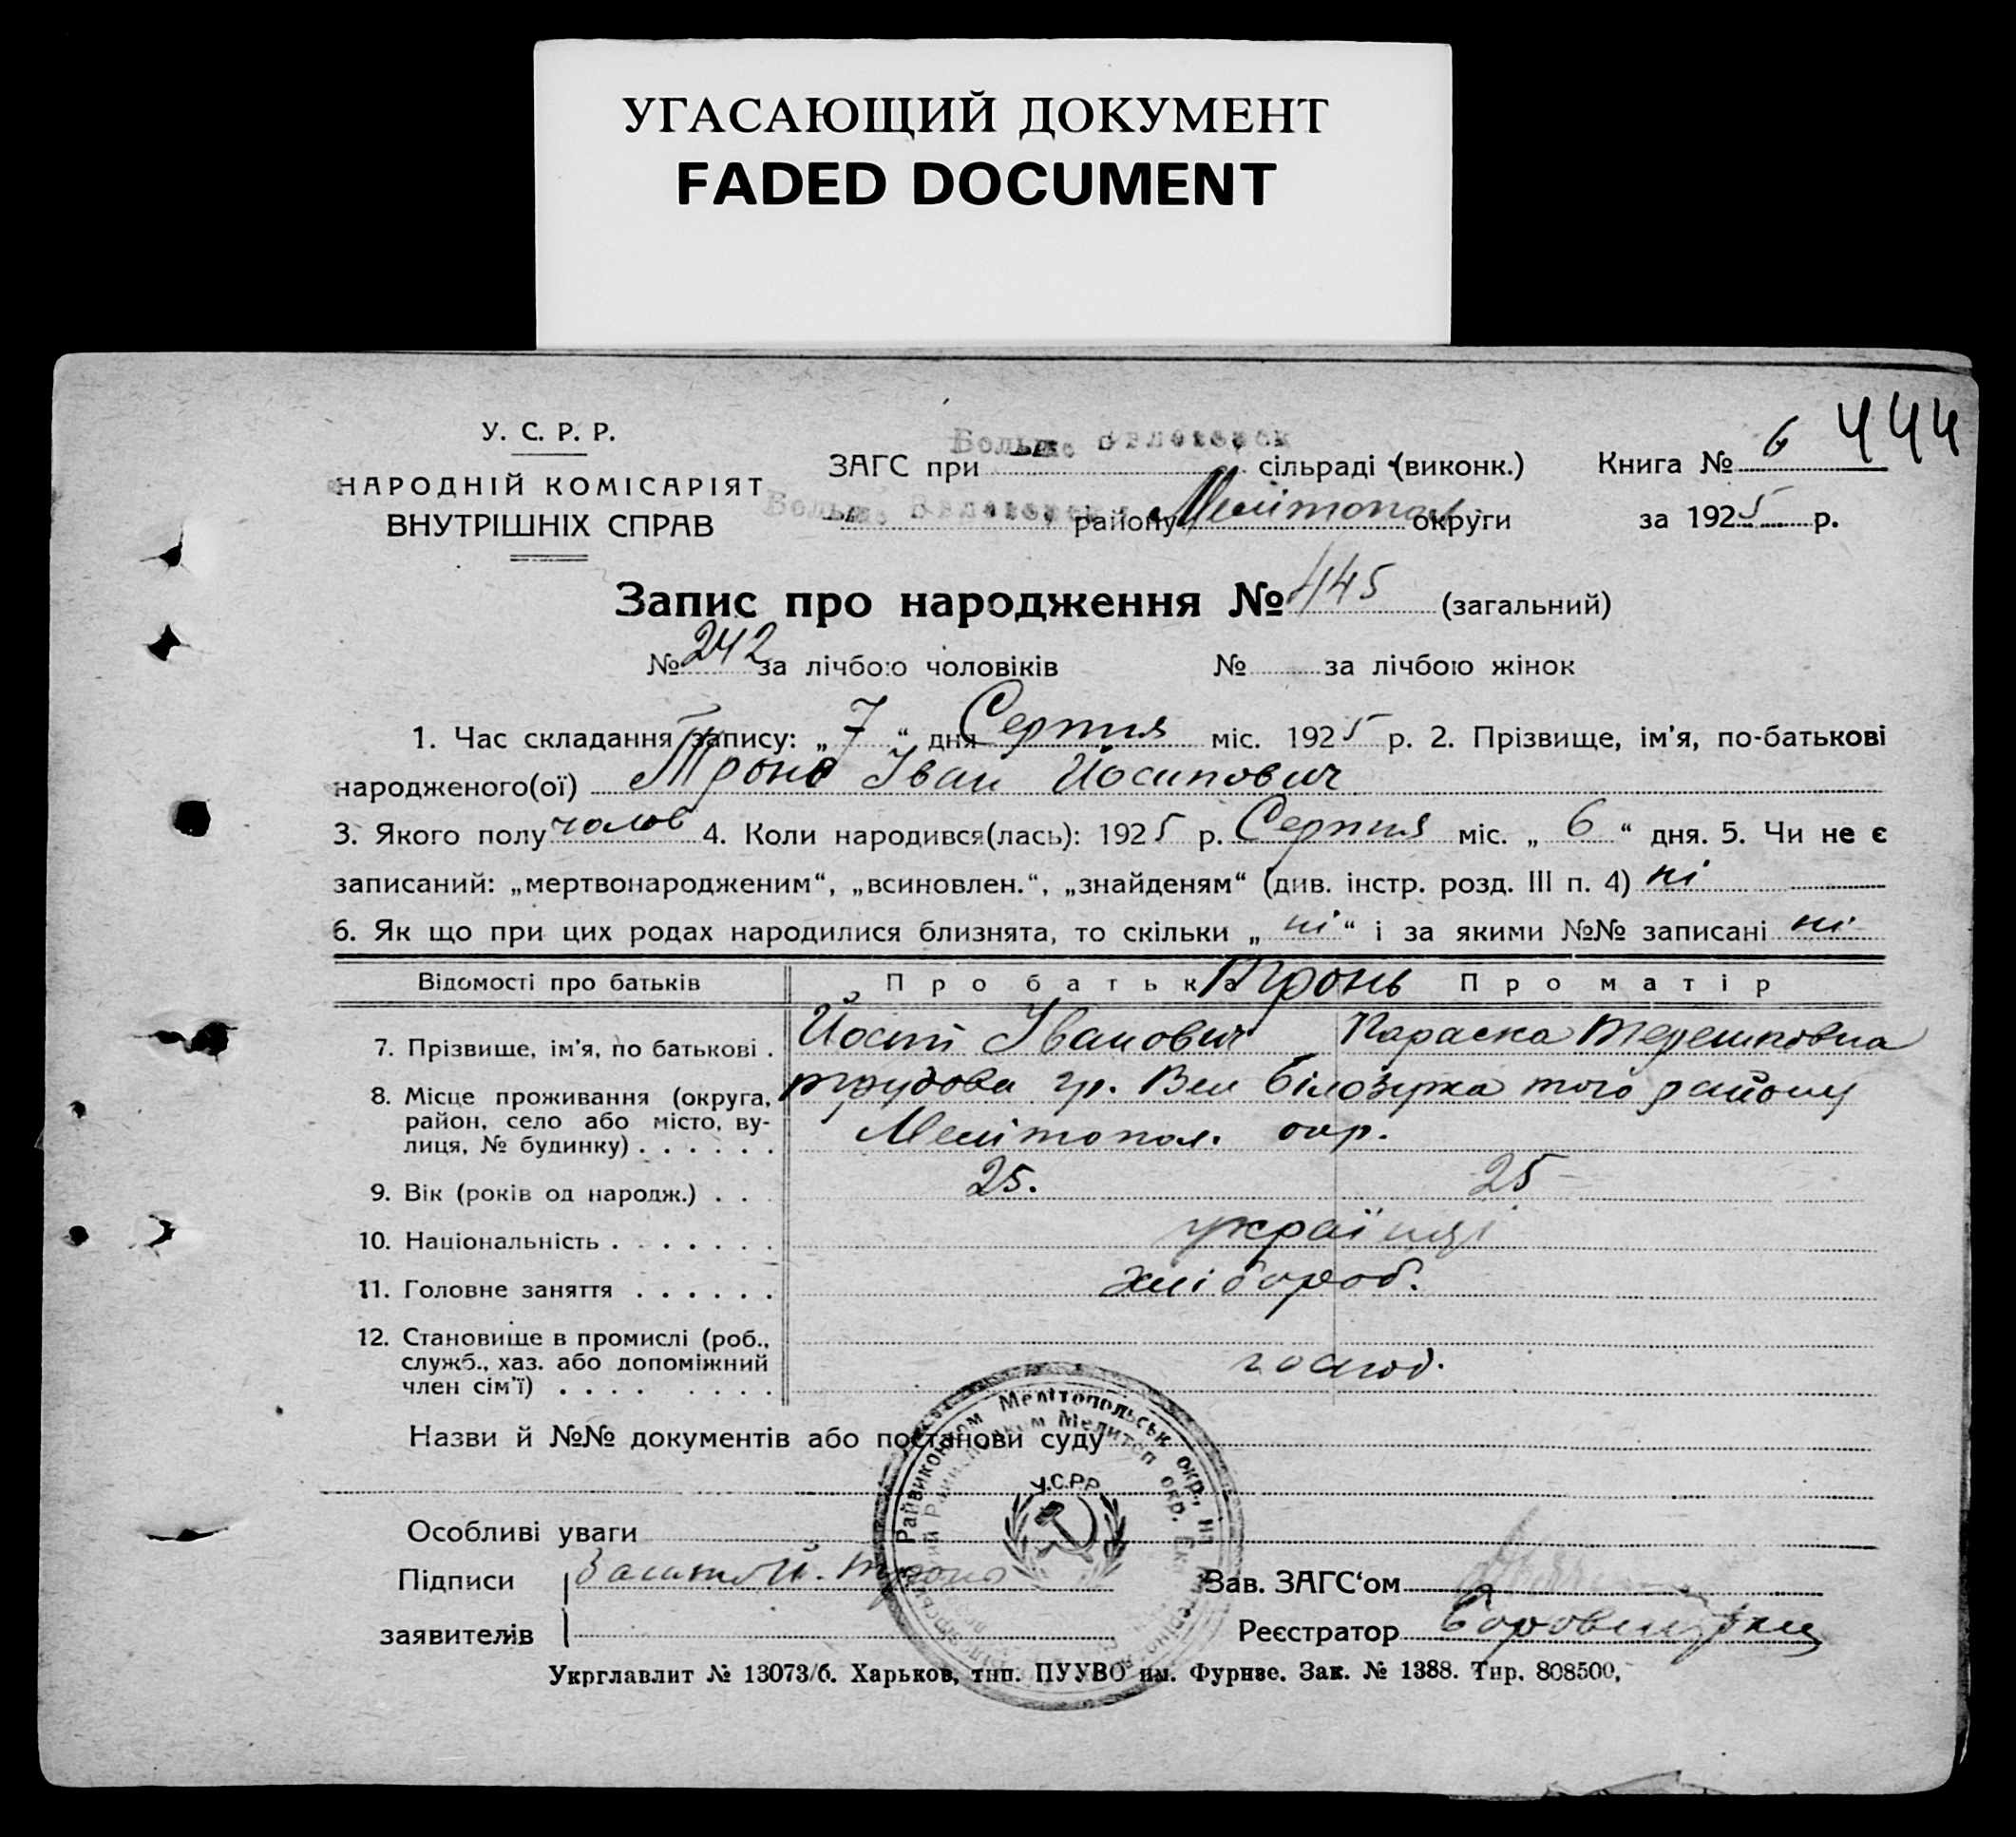 УГАСАЮЩИЙ ДОКУМЕНТ
FADED DOCUMENT
444
У. С. Р. Р.
НАРОДНІЙ КОМІСАРІЯТ
ВНУТРІШНІХ СПРАВ
ЗАГС при Больше Белозерск сільраді (виконк.)
Больше Белозерск району Мелітопол округи
Книга № 6
за 1925 р.
Запис про народження № 445 (загальний)
№ 242 за лічбою чоловіків № за лічбою жінок
1. Час складання запису: „ 7 “ дня Серпня міс. 1925 р. 2. Прізвище, ім’я, по-батькові
народженого(ої) Тронь Іван Йосипович
3. Якого полу чолов 4. Коли народився(лась): 1925 р. Серпня міс. „ 6 “ дня. 5. Чи не є
записаний: „мертвонародженим“, „всиновлен.“, „знайденям“ (див. інстр. розд. III п. 4) ні
6. Як що при цих родах народилися близнята, то скільки „ ні “ і за якими №№ записані ні
Відомості про батьків Про батька Тронь Про матір
7. Прізвище, ім’я, по батькові . Йосип Іванович Параска Терешковна
8. Місце проживання (округа, гр. Вел Білозірка того району
район, село або місто, ву- Мелітопол. окр.
лиця, № будинку) . . . . . .
9. Вік (років од народж.) . . 25. 25
10. Національність . . . . . . . українці
11. Головне заняття . . . . . . хлібороб.
12. Становище в промислі (роб.,
служб., хаз. або допоміжний господ.
член сім’ї) . . . . . . . .
Назви й №№ документів або постанови суду
Райвиконком Мелітопольськ окр.,
У.С.Р.Р.
Особливі уваги
Підписи Й. Тронь
заявителів
Зав. ЗАГС‘ом
Реєстратор
Укрглавлит № 13073/б. Харьков, тип. ПУУВО им. Фрунзе. Зак. № 1388. Тир. 808500,